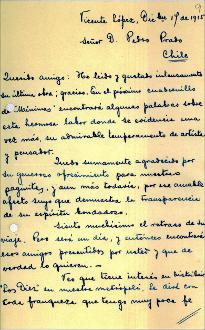 9
Vicente López, Dic bre 19 de 1915
Señor D. Pedro Prado
Chile
Querido amigo: He leído y gustado intensamente
su última obra; gracias. En el próximo cuadernillo
de "Mínimas" encontrará algunas palabras sobre
esta hermosa labor donde se evidencia una
vez más, su admirable temperamento de artista
y pensador.
Quedo sumamente agradecido por
su generoso ofrecimiento para nuestras
paginitas, y aun más todavía, por ese amable
afecto suyo que demuestra la transparencia
de su espíritu bondadoso.
Siento muchísimo el retraso de su
viaje. Pero será un día, y entonces encontrará
esos amigos presentidos por usted y que de
verdad lo quieren.
Veo que tiene interés en distribuir
"Los Diez" en nuestra metrópoli; le diré con
toda franqueza que tengo muy poca fe